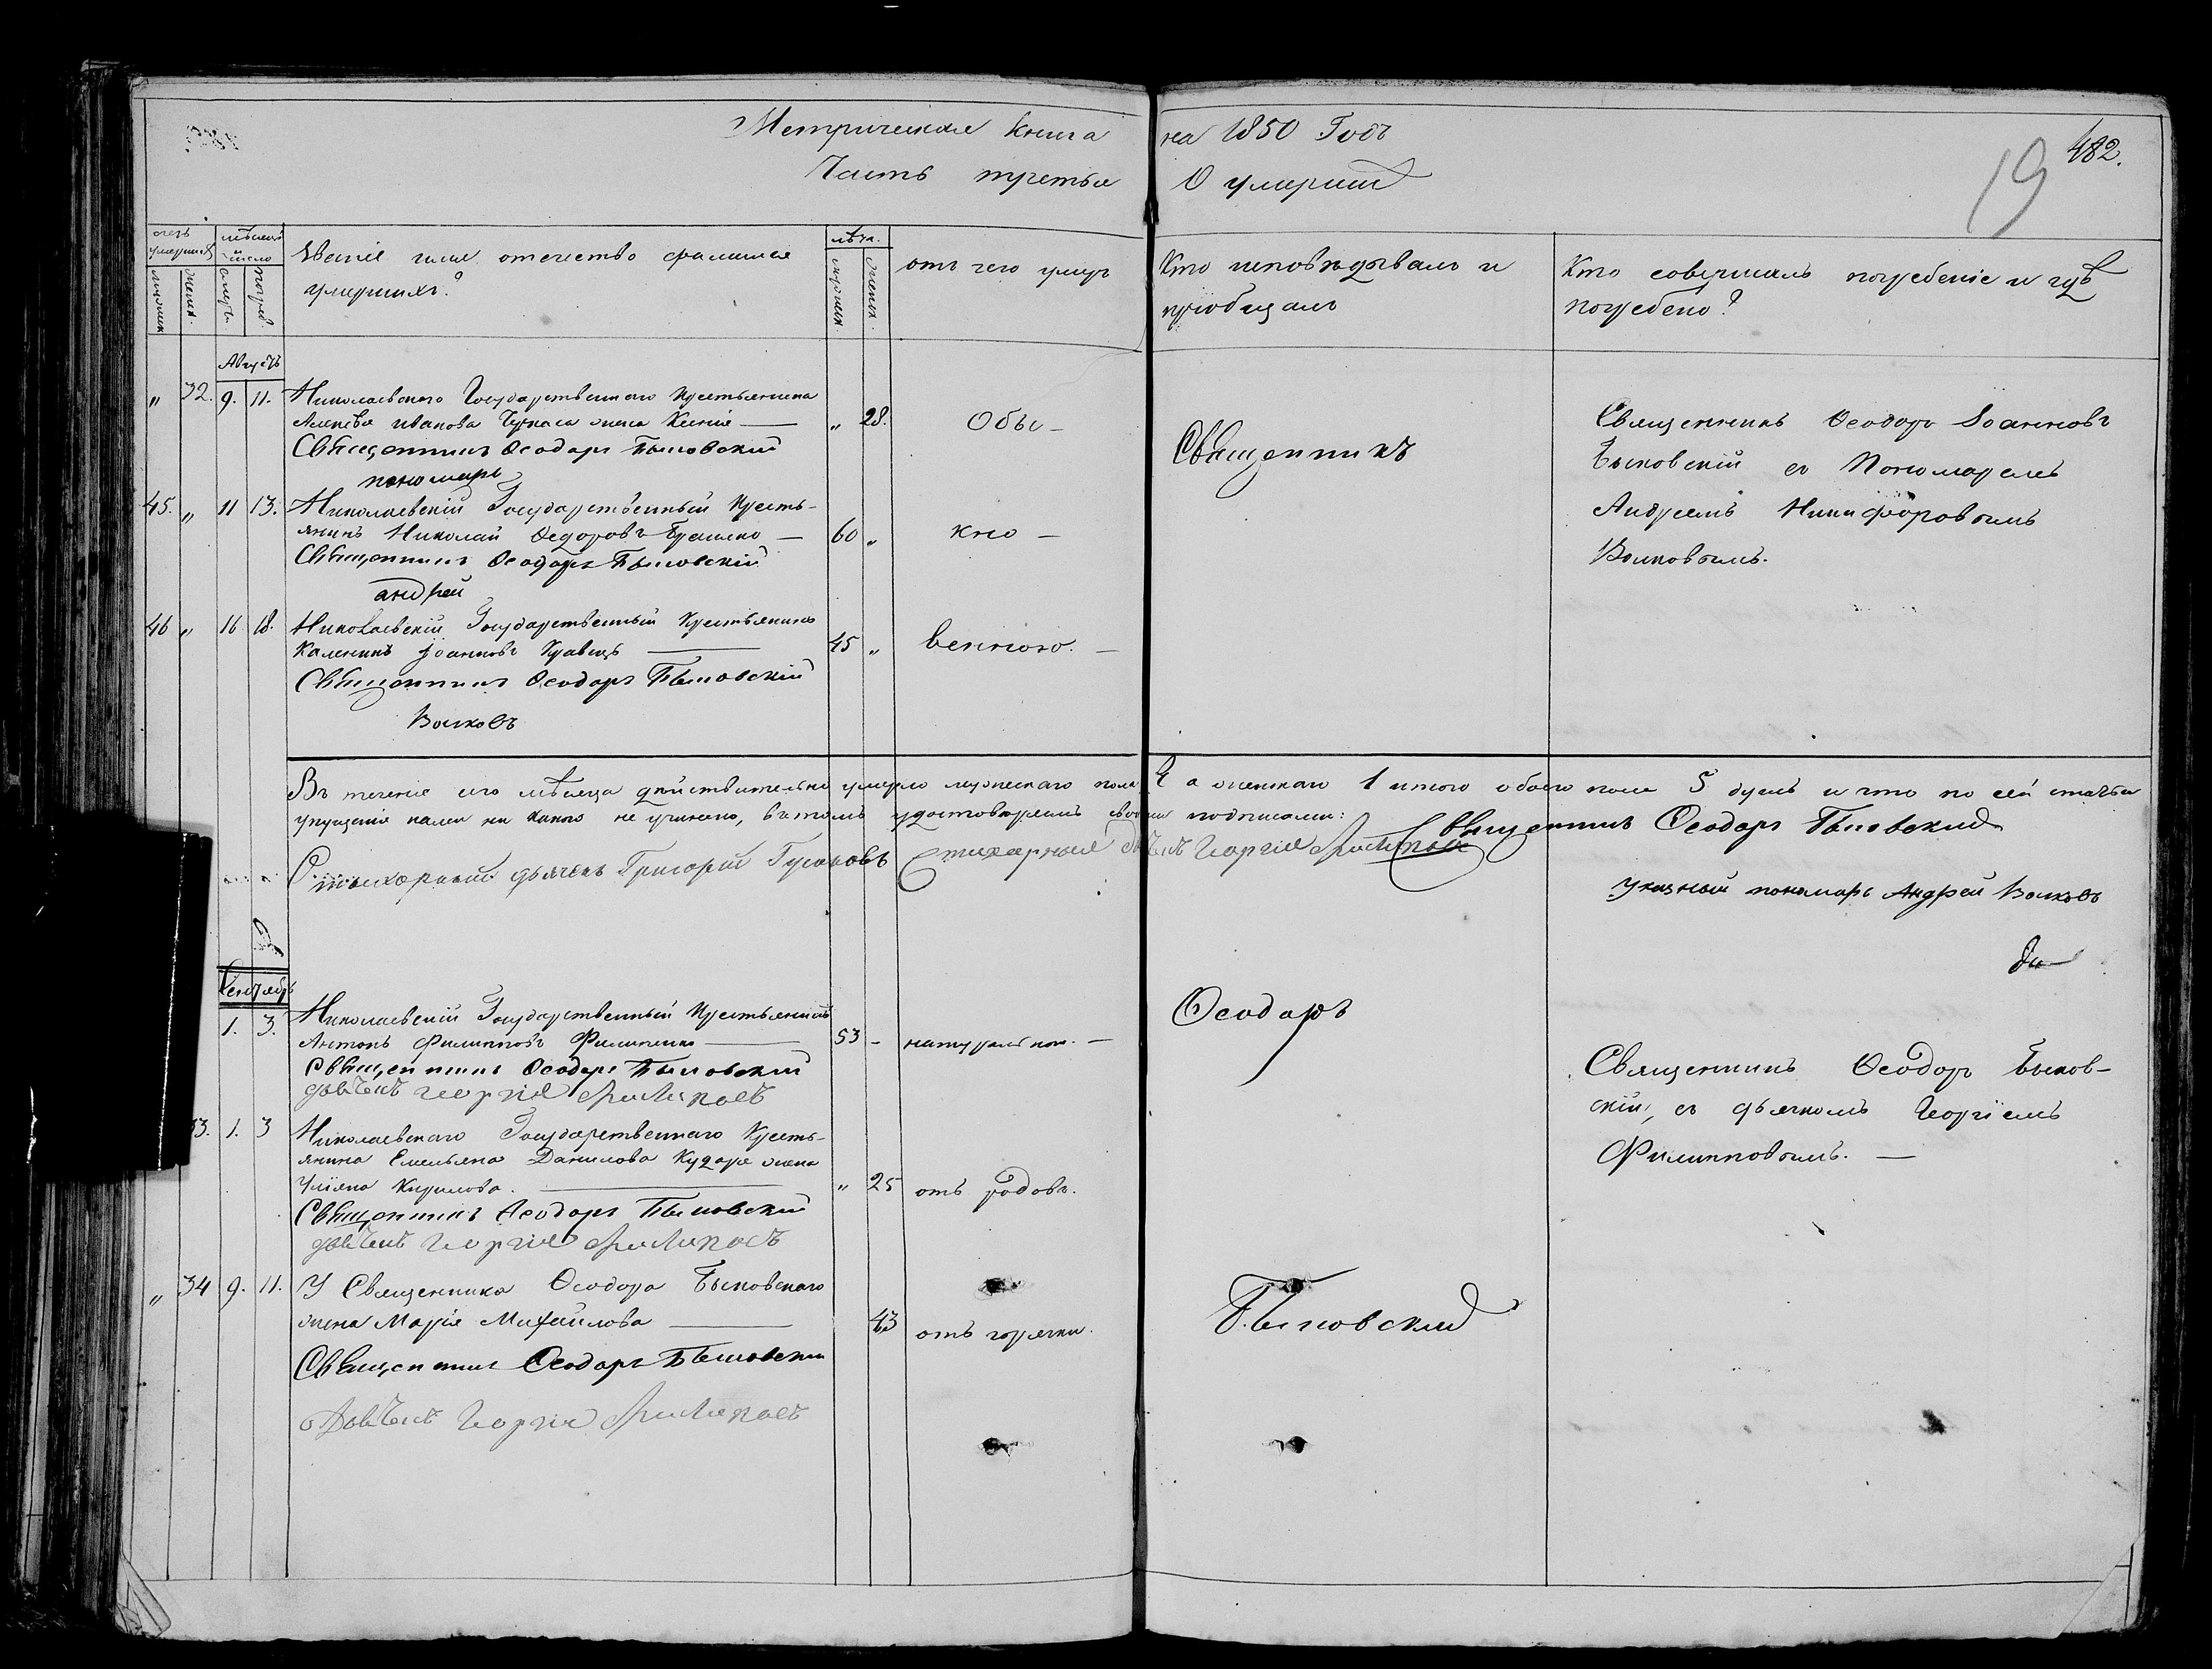 Метрическая книга на 1850 Годъ
482.
19
Часть третья О умершихъ
счетъ умершихъ
мужеск.
женск.
мѣсяцъ и число
смерть.
погреб.
Званіе имя отечество фамилія
умершихъ?
лѣта.
мужеск.
женск.
отъ чего умеръ
Кто исповѣдывалъ и
пріобщалъ
Кто совершалъ погребеніе и гдѣ
погребено?
Августъ
" 32. 9. 11. Николаевскаго Государственнаго Крестьянина
Иванова жена Ксенія — " 28. Обы-
Священникъ Ѳеодоръ Быковскій
пономарь
Священникъ
Священникъ Ѳеодоръ Іоанновъ
Быковскій съ Пономаремъ
Андреемъ Никифоровымъ
Волковымъ.
45. " 11 13. Николаевскій Государственный Кресть-
янинъ Николай Ѳедоровъ — 60 " кно —
Священникъ Ѳеодоръ Быковскій
андрей
46 " 16 18. Николаевскій Государственный Крестьянинъ
Каленикъ Іоанновъ Кравецъ — 45 " венною. —
Священникъ Ѳеодоръ Быковскій
Волковъ
Въ теченіе сего мѣсяца дѣйствительно умерло мужескаго пола 4 а женскаго 1 итого обоего пола 5 душъ и что по сей статьи
упущенія нами ни какого не учинено, въ томъ удостовѣряемъ своими подписами: Священникъ Ѳеодоръ Быковскій
Стихарный дьячекъ Григорій Гусаковъ Стихарный Георгій Филиповъ
Указный пономарь Андрей Волковъ
Сентябрь
1. 3. Николаевскій Государственный Крестьянинъ
Антонъ Филипповъ Филипенко — 53 - натуральною. —
Священникъ Ѳеодоръ Быковскій
дьячекъ Георгій Филиповъ
Ѳеодоръ
Священникъ Ѳеодоръ Быков-
скій, съ дьячкомъ Георгіемъ
Филипповымъ. —
33. 1. 3 Николаевскаго Государственнаго Кресть-
янина Емельяна Данилова жена
Уліяна Кирилова. — " 25 отъ родовъ.
Священникъ Ѳеодоръ Быковскій
дьячекъ Георгій Филиповъ
" 34 9. 11. У Священника Ѳеодора Быковскаго
жена Марія Михайлова — 43 отъ горячки.
Священникъ Ѳеодоръ Быковскій
дьячекъ Георгій Филиповъ
Быковскій